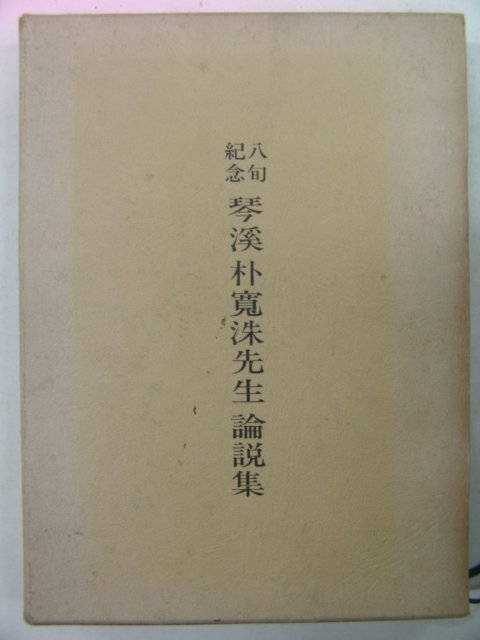 八旬
紀念
琴溪朴寬洙先生論説集